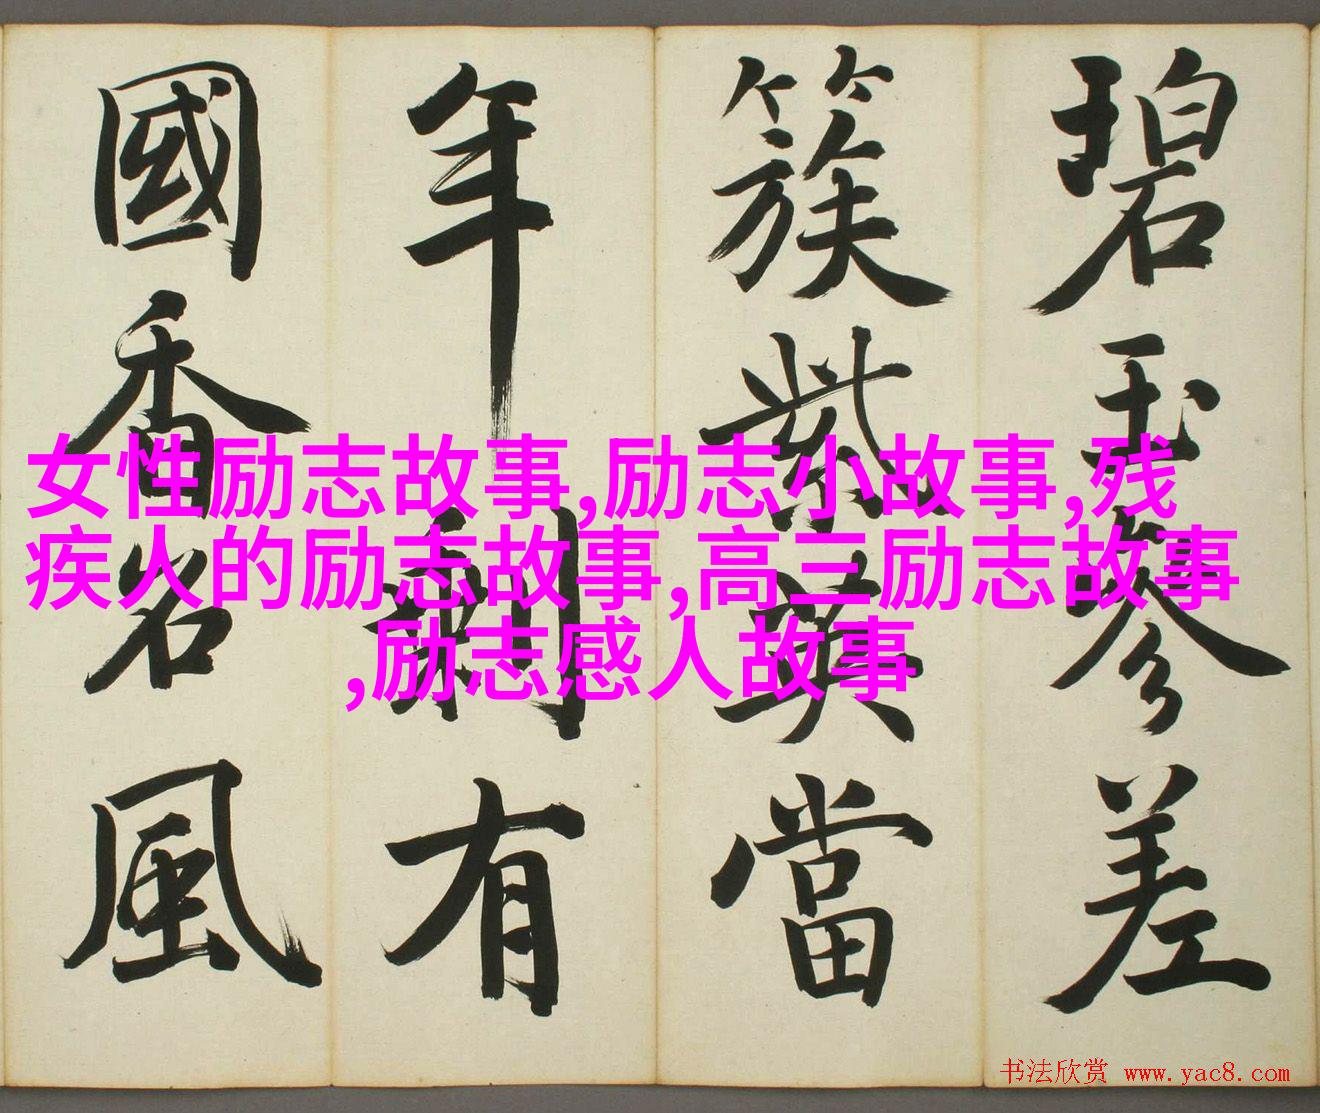 碧玉參差
簇紫英當
年剩有
國香名風
女性励志故事,励志小故事,残
疾人的励志故事,高三励志故事
,励志感人故事
书法欣赏 www.yac8.com